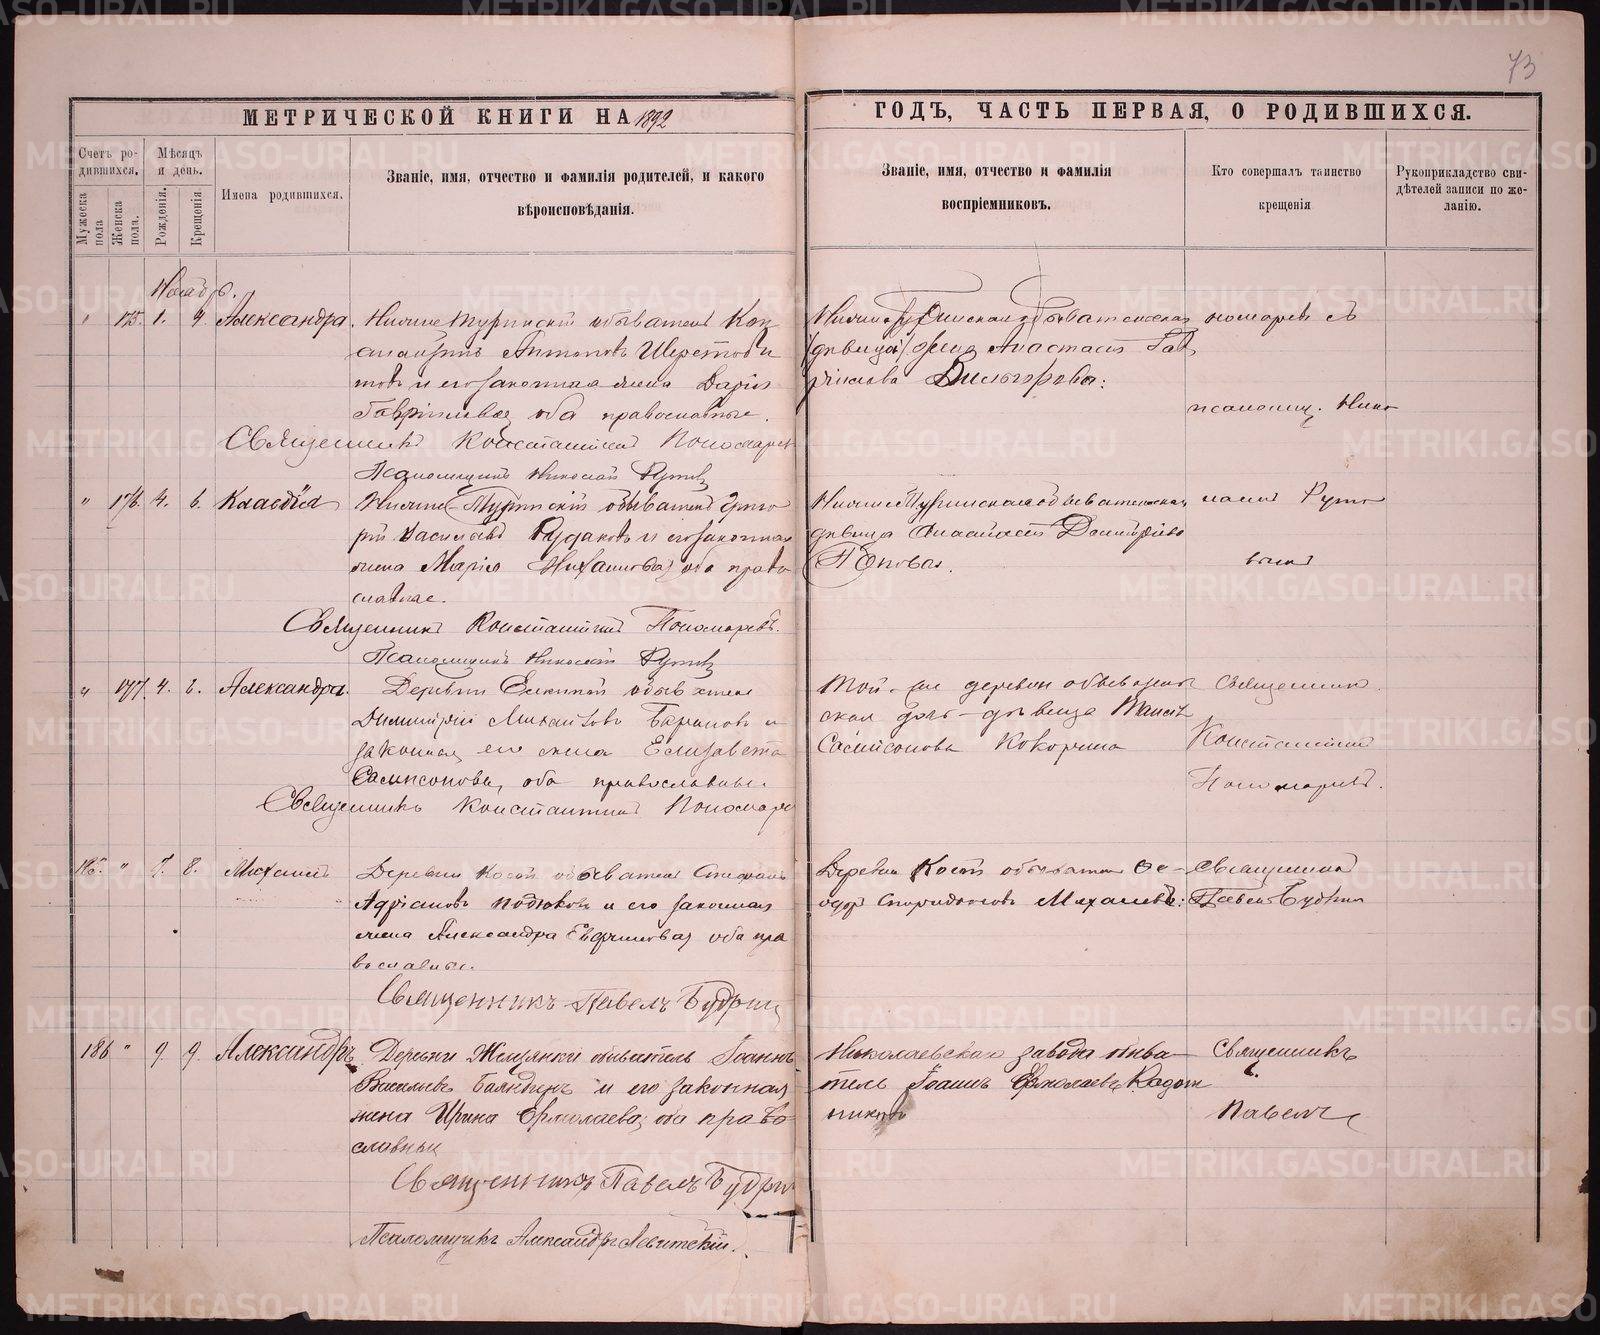 73
МЕТРИЧЕСКОЙ КНИГИ НА 1892
ГОДЪ, ЧАСТЬ ПЕРВАЯ, О РОДИВШИХСЯ.
Счетъ родившихся.
Мужеска пола
Женска пола.
Мѣсяцъ и день.
Рожденія.
Крещенія.
Имена родившихся.
Званіе, имя, отчество и фамилія родителей, и какого
вѣроисповѣданія.
Званіе, имя, отчество и фамилія
воспріемниковъ.
Кто совершалъ таинство
крещенія
Рукоприкладство свидѣтелей записи по желанію.
Ноябрь.
175. 1. 4. Александра. Нижне Туринскій обыватель Кон
стантинъ Антоновъ
и его законная жена Дарія
Гавріилова, оба православные.
Священникъ Константинъ Пономарев
Псаломщикъ Николай
Нижнетуринская обывательская
дѣвица Анастасія Гав
ріилова
Пономаревъ съ
псаломщ. Нико
" 176. 4. 6. Клавдія Нижне-Туринскій обыватель Григо
рій Васильевъ Рудаковъ и его законная
жена Марія Михаилова, оба право
славные.
Священникъ Константинъ Пономаревъ.
Псаломщикъ Николай
Нижнетуринская обывательская
дѣвица Анастасія Димитріева
Попова.
лаемъ
" 177. 4. 6. Александра. Деревни Елкиной обыватель
Димитрій Михаиловъ Барановъ и
законная его жена Елизавета
Сампсонова, оба православные.
Священникъ Константинъ Пономаре
Той-же деревни обыватель
ская дочь-дѣвица
Сампсонова Кокорина
Священникъ
Константинъ
Пономаревъ.
185. " 7. 8. Михаилъ Деревни Косой обыватель Стефанъ
Адріановъ Подюковъ и его законная
жена Александра Евфимова, оба пра
вославные.
Священникъ Павелъ Будрин
Деревни Косой обыватель Ѳе-
одоръ Спиридоновъ Михалевъ.
Священникъ
Павелъ Будринъ
186 " 9. 9. Александръ Деревни Желзянки обыватель Іоаннъ
Васильевъ Баландинъ и его законная
жена Ирина Ермолаева, оба право-
славны
Священникъ Павелъ Будрин
Псаломщикъ Александръ Левитскій.
Николаевскаго завода обыва-
тель Іоаннъ Ермолаевъ Кадош
никовъ
Священникъ
Павелъ
METRIKI.GASO-URAL.RU